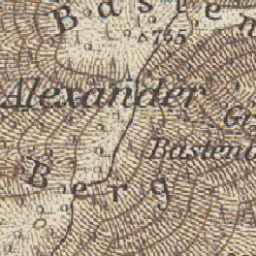 Basten
755
Alexander
Bastenb
Berg